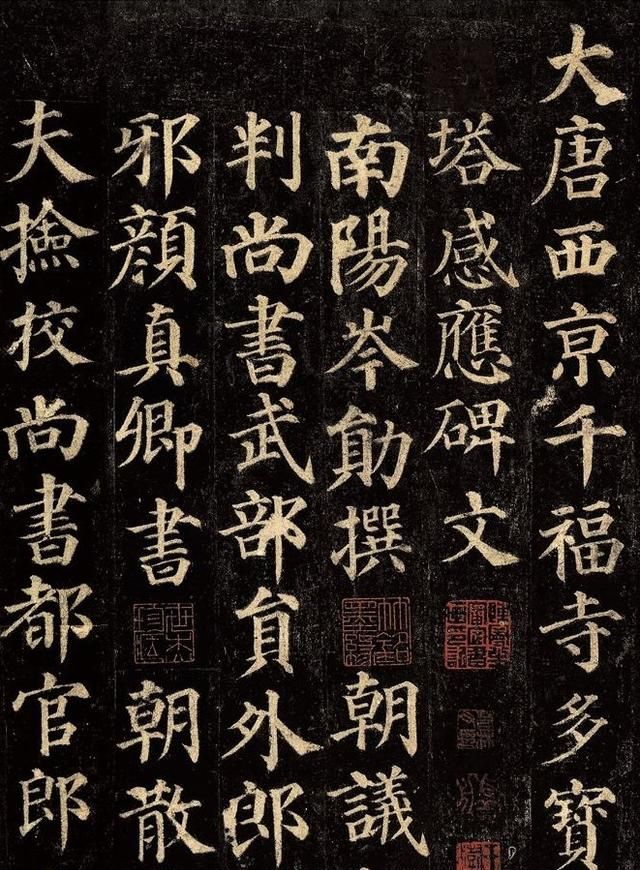 大唐西京千福寺多寶
塔感應碑文
南陽岑勛撰 朝議
判尚書武部員外郎
邪顏真卿書 朝散
夫撿挍尚書都官郎